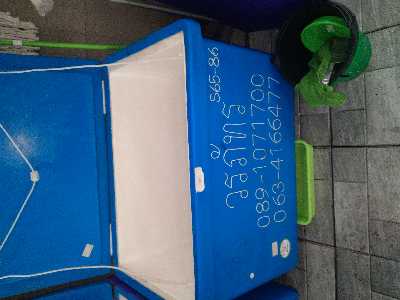 S65-86
วรภัทร
089-1071700
063-4166477